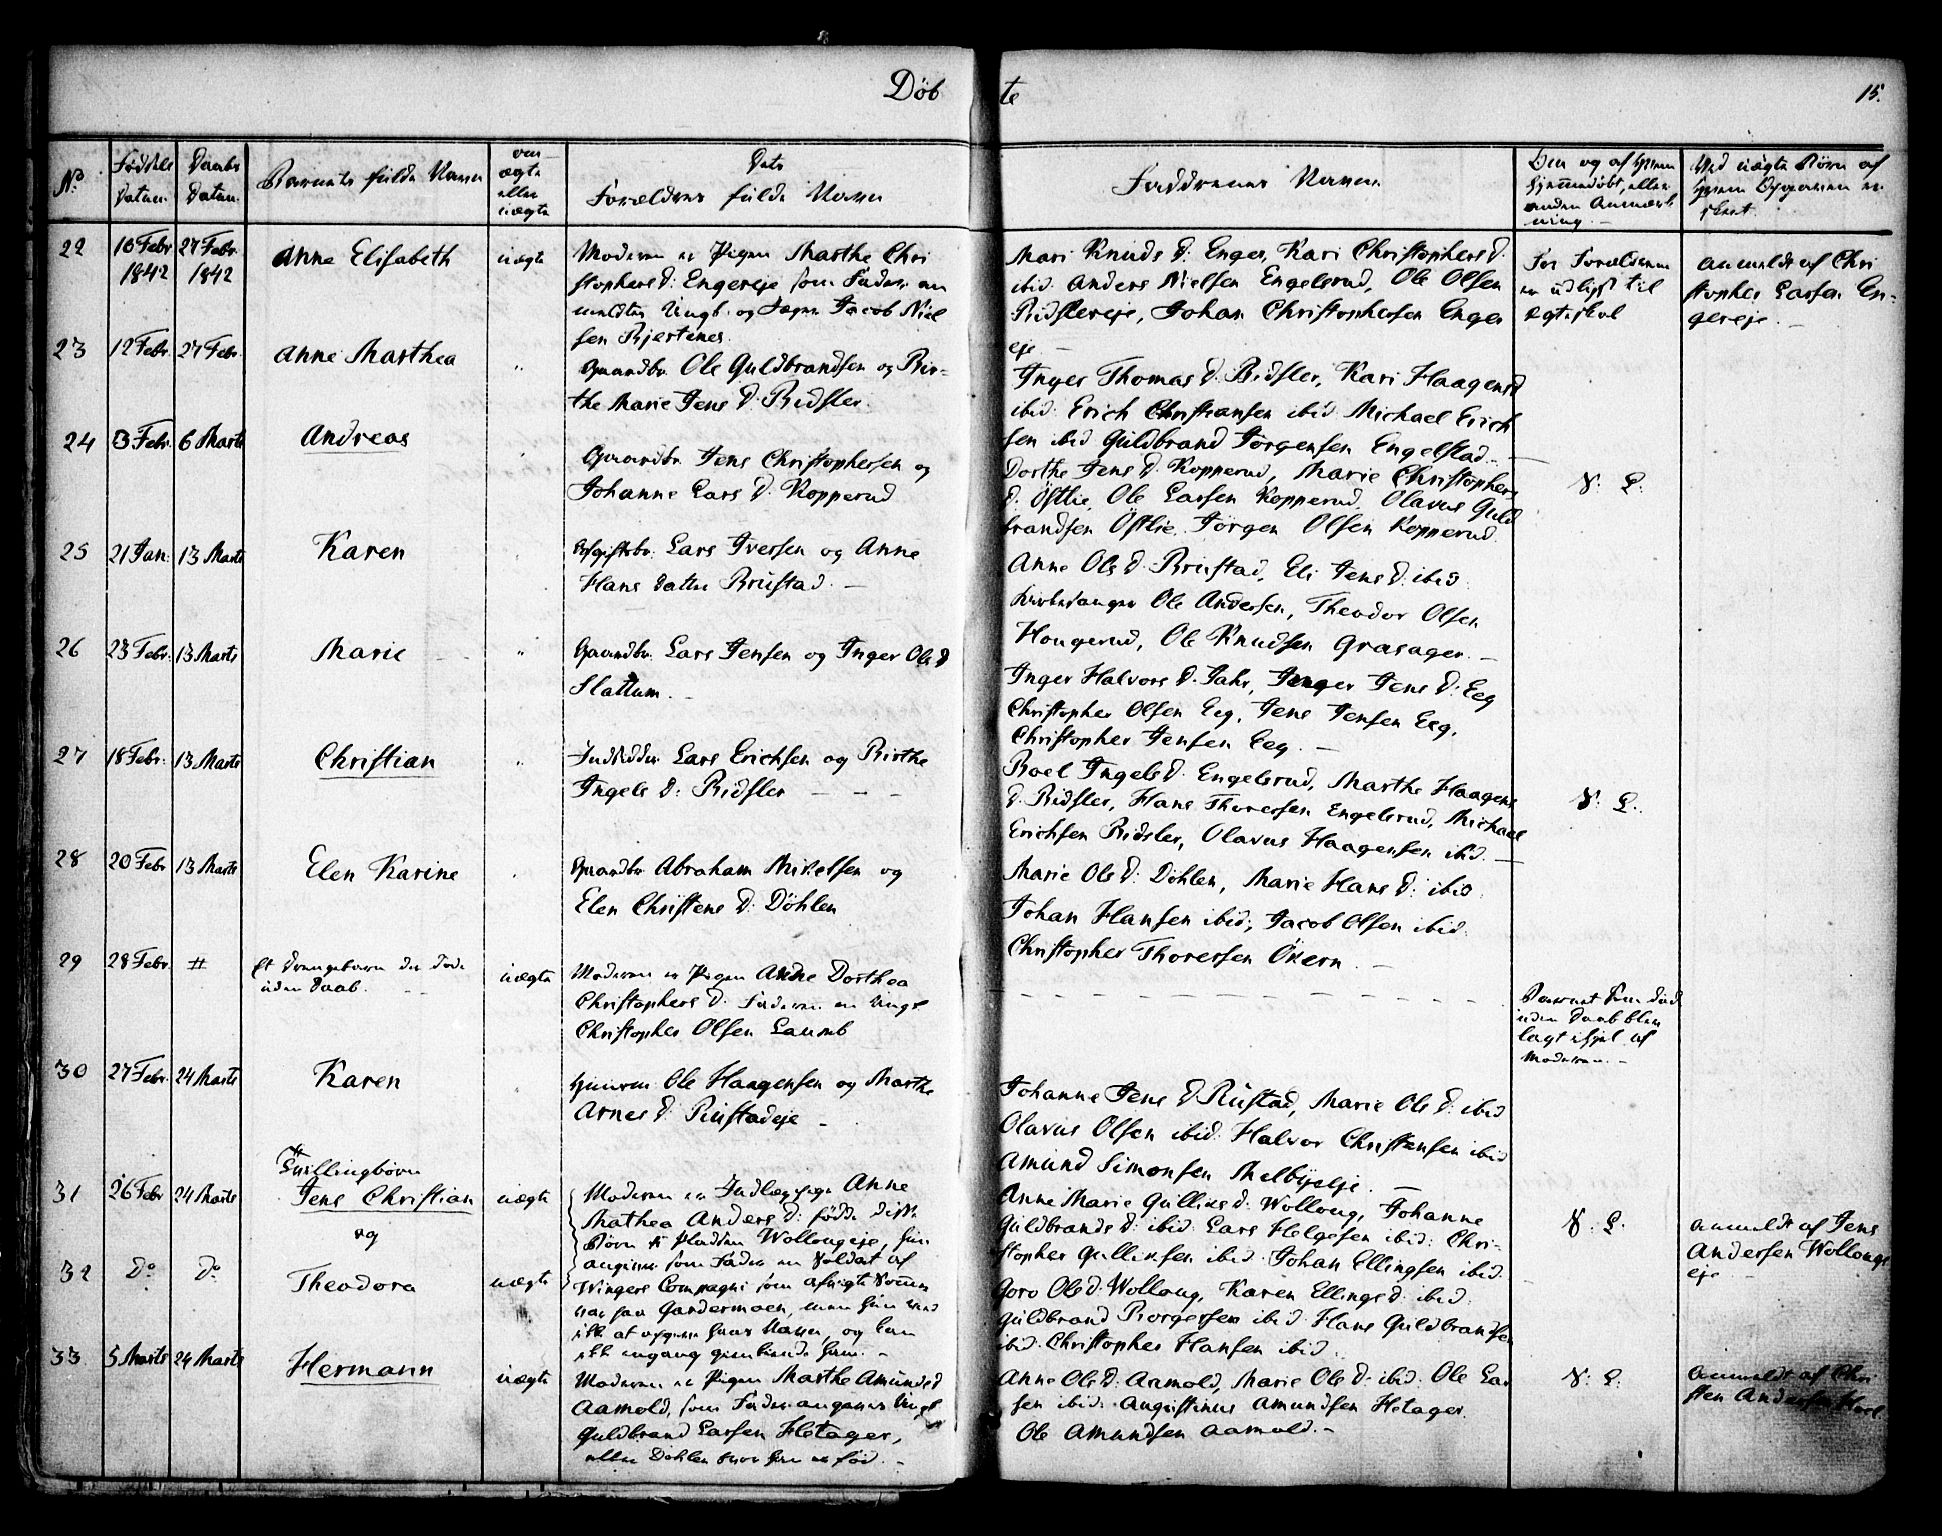 Döbte
15.
No.
Fødsels Datum.
Daabs Datum.
Barnets fulde Navn
om ægte eller uægte
Dets Forældres fulde Navn
Faddrenes Navne
Ved uægte Børn af hvem Opgaven er skeet.
22
10 Febr. 1842
27 Febr. 1842
Anne Elisabeth
uægte
Moderen er Pigen Marthe Chri
stophers D: Engereje som Fader an
meldtes Ungk. og Jacob Niel
sen Bjertenes.
Mari Knuds D: Enger, Kari Christophers D.
ibid. Anders Nielsen Engelsrud, Ole Olsen
Ridslereje, Johan Christophersen Enger
eje —
For Forældrene
er udlyst til
Ægteskab
anmeldt af Chri
stopher Larsen En-
gereje. —
23
12 Febr.
27 Febr.
Anne Marthea
"
Gaardbr. Ole Guldbrandsen og Bir-
the Marie Jens D. Ridsler.
Inger Thomas D. Ridsler, Kari Haagens D
ibid. Erich Christiansen ibid Michael Erich
sen ibid Guldbrand Jörgensen Engelstad. —
24
3 Febr.
6 Marts
Andreas
"
Gaardbr. Jens Christophersen og
Johanne Lars D. Kopperud
Dorthe Jens D. Kopperud, Marie Christophers
D. Östlie, Ole Larsen Kopperud, Olavus Guld
brandsen Östlie. Jörgen Olsen Kopperud.
V: L:
25
21 Jan.
13 Marts
Karen
"
Lars Iversen og Anne
Hans Datter Brustad. —
Anne Ols D. Brustad, Eli Jens D. ibid.
Kirkesanger Ole Andersen, Theodor Olsen
Hougerud, Ole Knudsen Grasager. —
26
23 Febr.
13 Marts
Marie
"
Gaardbr. Lars Jensen og Inger Ols D
Slattum. —
Inger Halvors D. Jahr, Inger Jens D: Eeg
Christopher Olsen Eeg, Jens Jensen Eeg,
Christopher Jensen Eeg. —
27
18 Febr.
13 Marts
Christian
"
Indsidder Lars Erichsen og Birthe
Ingels D: Ridsler — — —
Roel Ingels D. Engelsrud, Marthe Haagens
D. Ridsler, Hans Thoresen Engelsrud, Michael
Erichsen Ridsler, Olavus Haagensen ibid. —
V: L.
28
20 Febr
13 Marts
Elen Karine
"
Gaardbr Abraham Mikelsen og
Elen Christens D: Döhlen
Marie Ols D: Döhlen, Marie Hans D: ibid.
Johan Hansen ibid; Jacob Olsen ibid.
Christopher Thoresen Ökern. —
29
28 Febr.
#
Et Drengebarn der døde
uden Daab.
uægte
Moderen er Pigen Anne Dorthea
Christophers D. Faderen er Ungk
Christopher Olsen Laumb
Barnet som død
uden Daab blev
lagt ihjel af
Moderen. —
30
27 Febr.
24 Marts
Karen
"
Huusm Ole Haagensen og Marthe
Arnes D: Rustadeje —
Johanne Jens D. Rustad, Marie Ols D: ibid
Olavus Olsen ibid. Halvor Christensen ibid
Amund Simonsen Melbyeje. —
Tvillingbørn
31
26 Febr
24 Marts
Jens Christian
og
uægte
Moderen er Anne
Mathea Anders D: født disse
Børn paa Pladsen Wollougeje, hun
angiver som Fader en Soldat af
Wingers Compagni som afvigte Sommer
var paa Gardermoen, men hun veed
ikke at opgive hans Navn, og kan
ikke engang gjenkjende ham. —
Anne Marie Gulliks D: Wolloug, Johanne
Guldbrands D: ibid. Lars Helgesen ibid: Chri-
stopher Gulliksen ibid. Johan Ellingsen ibid.
V. L:
anmeldt af Jens
Andersen Wolloug
eje
32
Do
Do
Theodora
uægte
Goro Ols D: Wolloug, Karen Ellings D: ibid.
Guldbrand Borgersen ibid. Hans Guldbrandsen
ibid. Christopher Hansen ibid.
33
5 Marts
24 Marts
Hermann
uægte
Moderen er Pigen Marthe Amunds D
Aamold, som Fader angives Ungk
Guldbrand Larsen Hetager,
eller Döhlen hvor han er fød. —
Anne Ols D: Aamold, Marie Ols D: ibid: Ole Lar
sen ibid. Augustinus Amundsen Hetager
Ole Amundsen Aamold. —
V: L:
anmeldt af Chri
sten Andersen